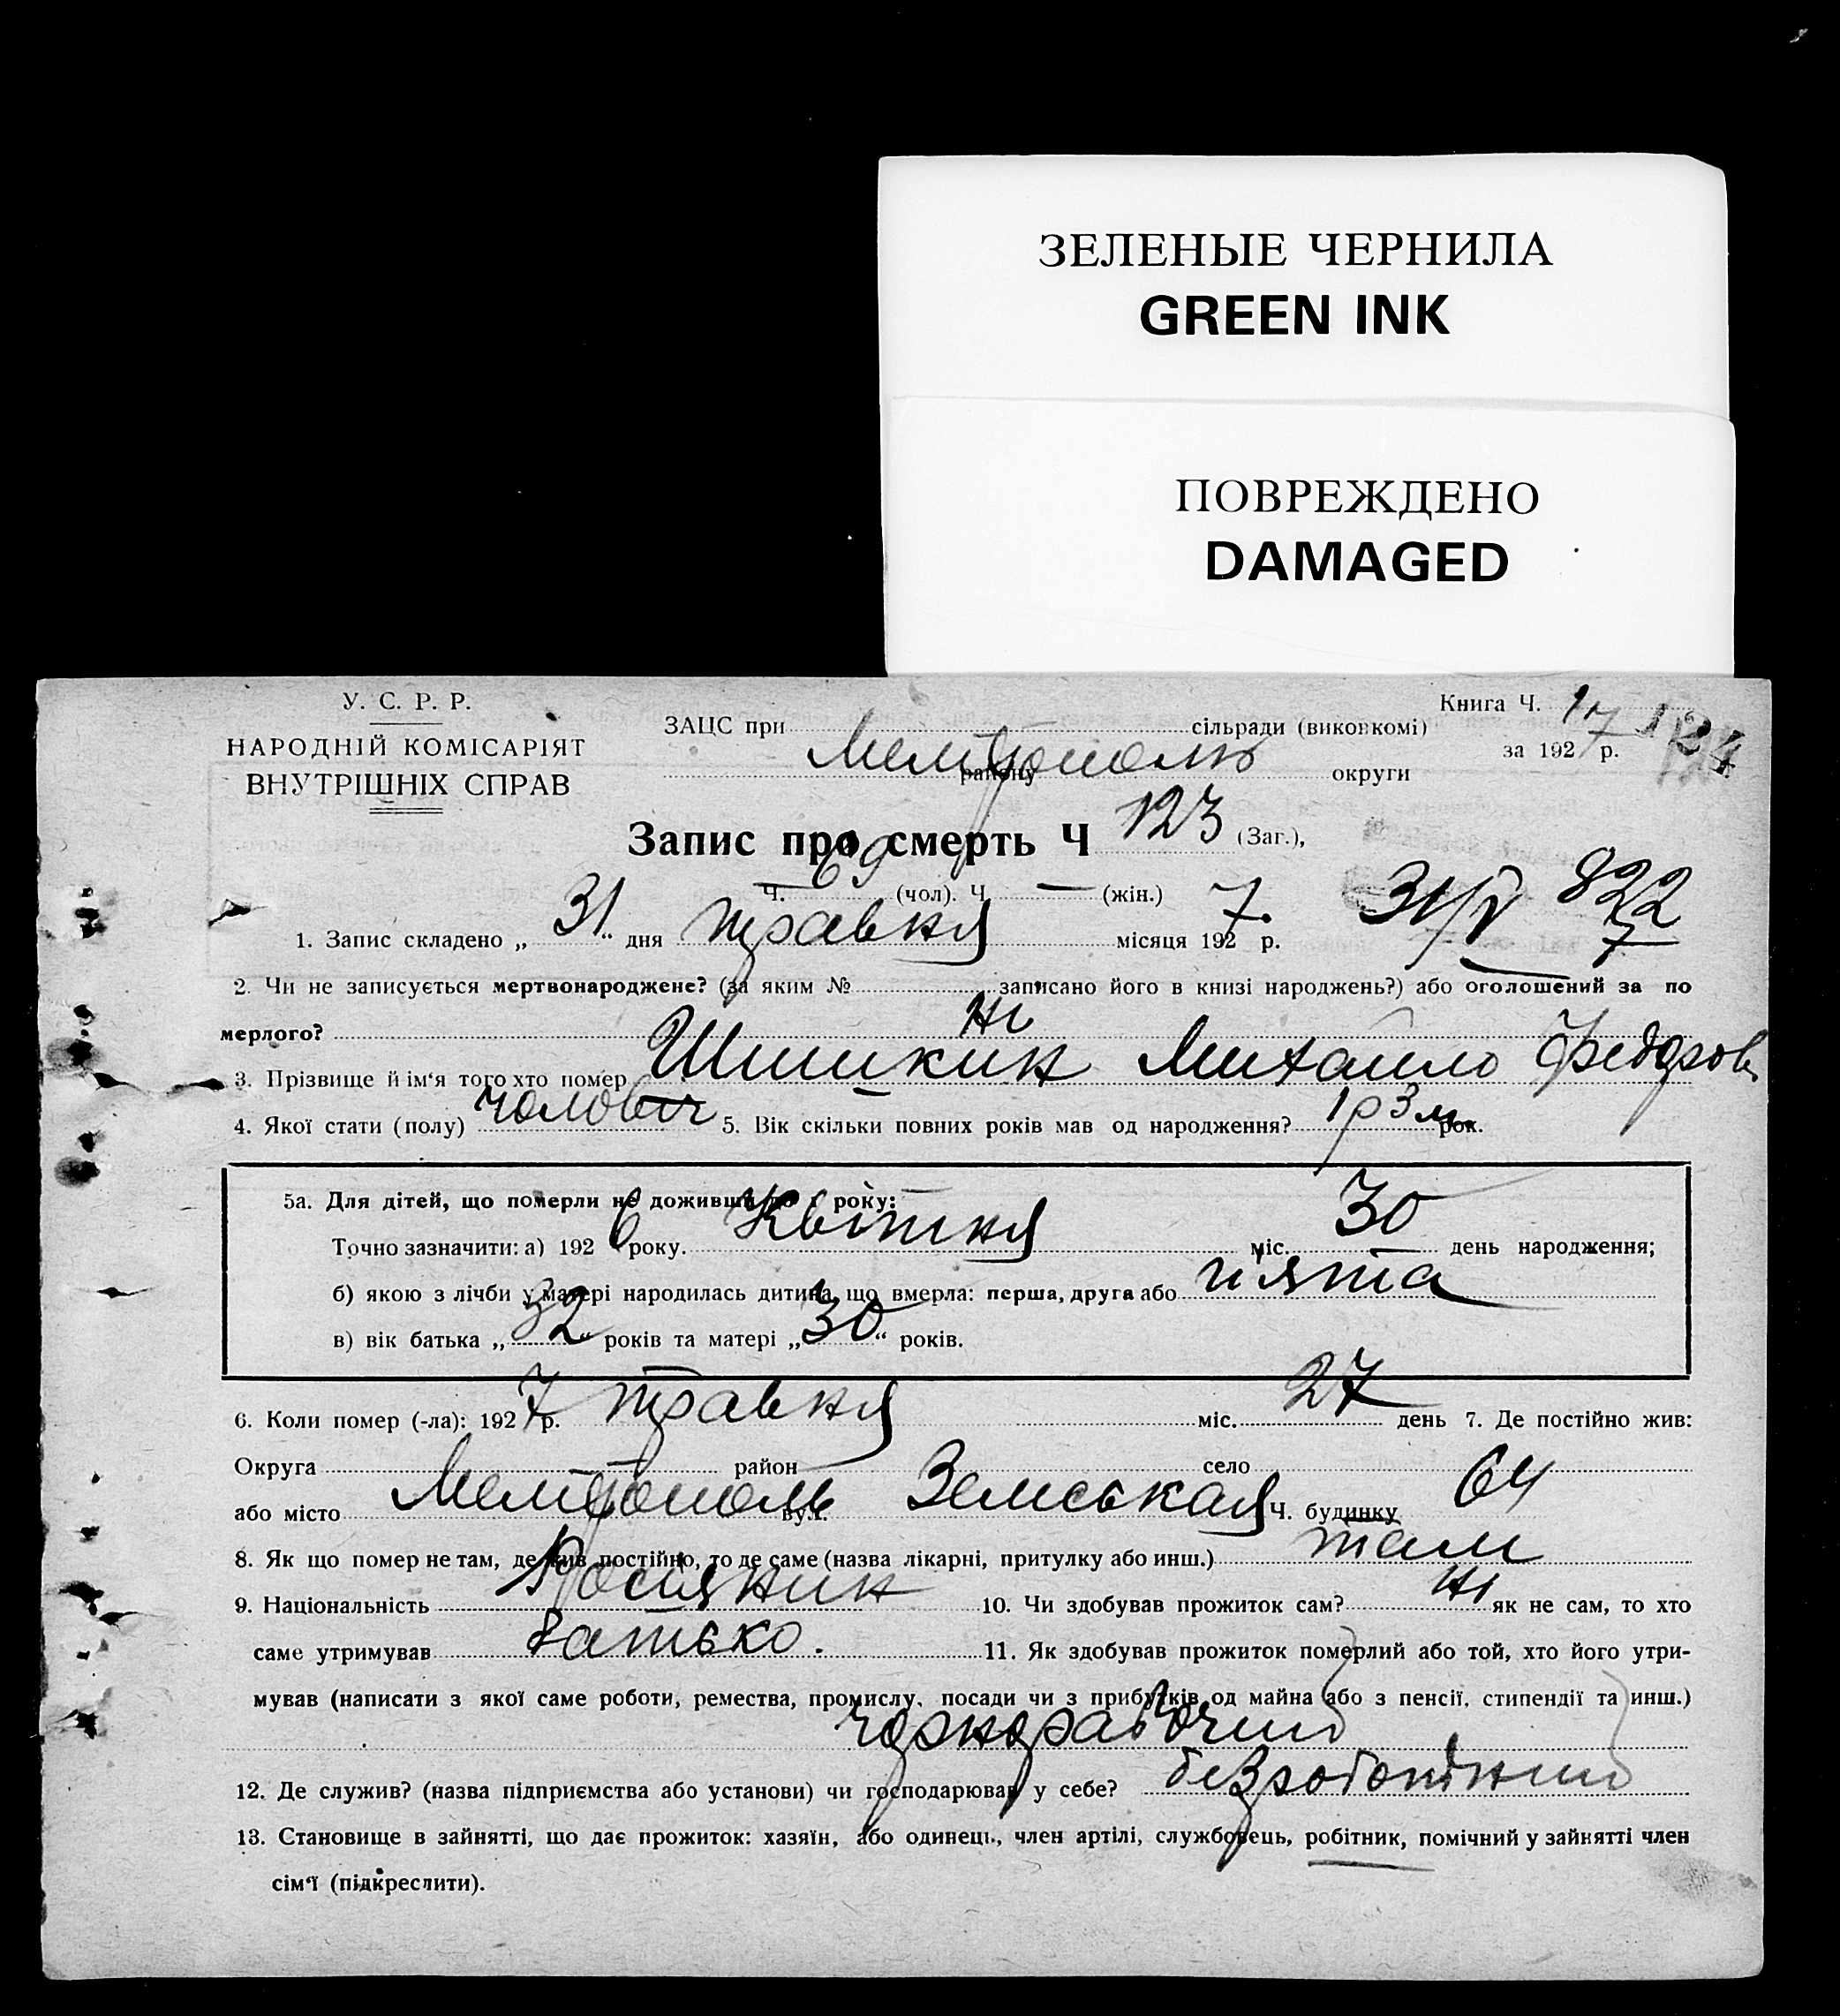 ЗЕЛЕНЫЕ ЧЕРНИЛА
GREEN INK
ПОВРЕЖДЕНО
DAMAGED
У. С. Р. Р.
НАРОДНІЙ КОМІСАРІЯТ
ВНУТРІШНІХ СПРАВ
Книга Ч. 1
за 1927 р. 124
ЗАЦС при сільради (виконкомі)
Мелітополь
району округи
Запис про смерть Ч 123 (Заг.),
Ч. 69 (чол). Ч — (жін.)
31/V 822
7
1. Запис складено „31“ дня травня місяця 1927 р.
2. Чи не записується мертвонароджене? (за яким № записано його в книзі народжень?) або оголошений за по
мерлого? Ні
3. Прізвище й ім‘я того хто помер Шишкін Михайло Федоров
4. Якої стати (полу) чоловіч 5. Вік скільки повних років мав од народження? 1 р 3 м. рок.
5а. Для дітей, що померли не доживши до 1 року:
Точно зазначити: а) 1926 року. Квітня міс. 30 день народження;
б) якою з лічби у матері народилась дитина, що вмерла: перша, друга або п'ята
в) вік батька „32“ років та матері „30“ років.
6. Коли помер (-ла): 1927 р. травня міс. 27 день 7. Де постійно жив:
Округа район село
або місто Мелітополь вул. Земськая Ч. будинку 64
8. Як що помер не там, де жив постійно, то де саме (назва лікарні, притулку або инш.) там
9. Національність Росіянин 10. Чи здобував прожиток сам? Ні як не сам, то хто
саме утримував батько. 11. Як здобував прожиток померлий або той, хто його утри-
мував (написати з якої саме роботи, ремества, промислу, посади чи з прибутків од майна або з пенсії, стипендії та инш.)
чорнорабочий
12. Де служив? (назва підприємства або установи) чи господарював у себе? безробітний
13. Становище в зайнятті, що дає прожиток: хазяїн, або одинець, член артілі, службовець, робітник, помічний у зайнятті член
сім‘ї (підкреслити).